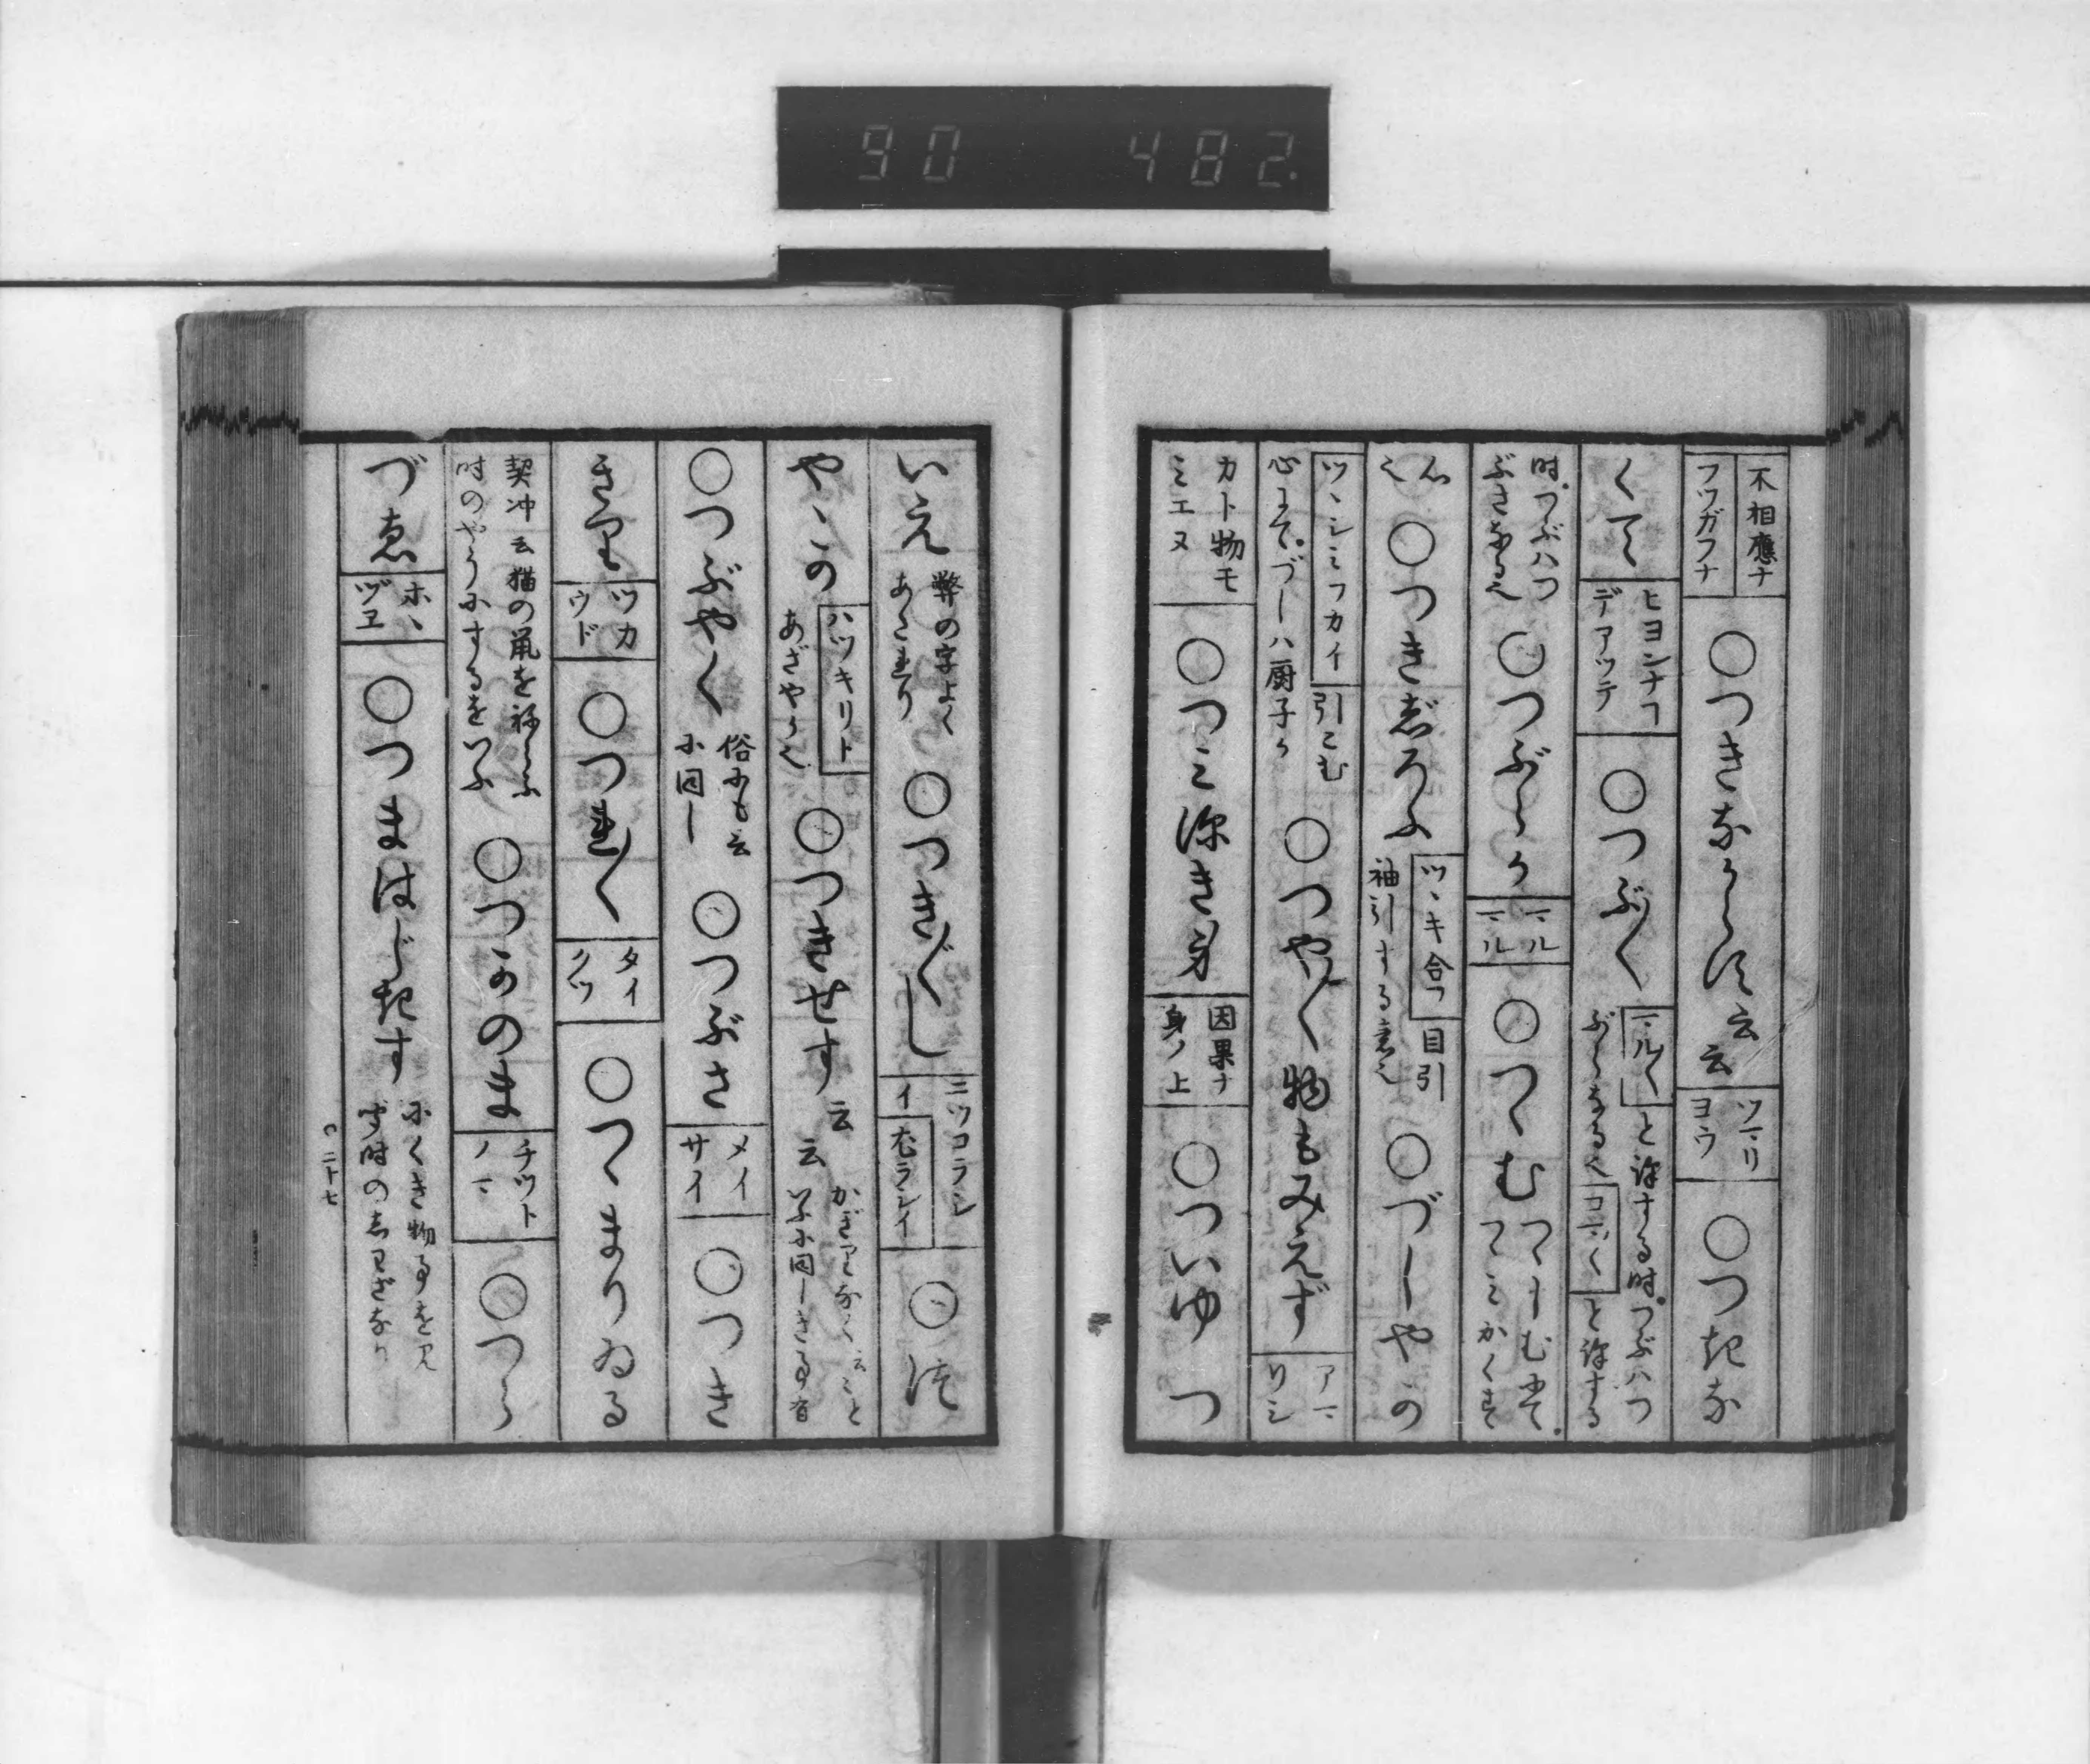 90 482.
不相應ナ
フツガフナ
○つきなからす云云
ツマリ
ヨウ
○つきな
くて
ヒヨンナコ
デアツテ
○つぶ〱
マル〱
と訳する時。つぶハつ
ぶらなる也
コマ〲
と訳する
時。つぶハつ
ぶさなる也
○つぶらか
マル
マル
○つくむ
心
也
○つきしろふ
ツヽキ合フ
目引
袖引する意也
○づしやの
ツヽシミフカイ
引こむ
心
づしハ厨子か
○つや〱物もみえず
アマ
リミ
カト物モ
ミエヌ
○つミ深き身
因果ナ
身ノ上
○ついゆ
つ
いえ
弊の字よく
あたれり
○つき〲し
ニツコラシ
イ
○は
やゝの
ハツキリト
あざやか也
○つきせす云云
かぎりなく云云と
いふに同しき事有
○つぶやく
俗にも云
に同し
○つぶさ
メイ
サイ
○つき
ツカ
ウド
○つれ〱
タイ
クツ
○つくまりゐる
契沖云猫の鼠を
時のやうにするをいふ
○つかのま
チツト
ノマ
○つら
づゑ
ホヽ
ヅヱ
○つまはじきす
にくき物事を見
聞時のしわざなり
〇二十七